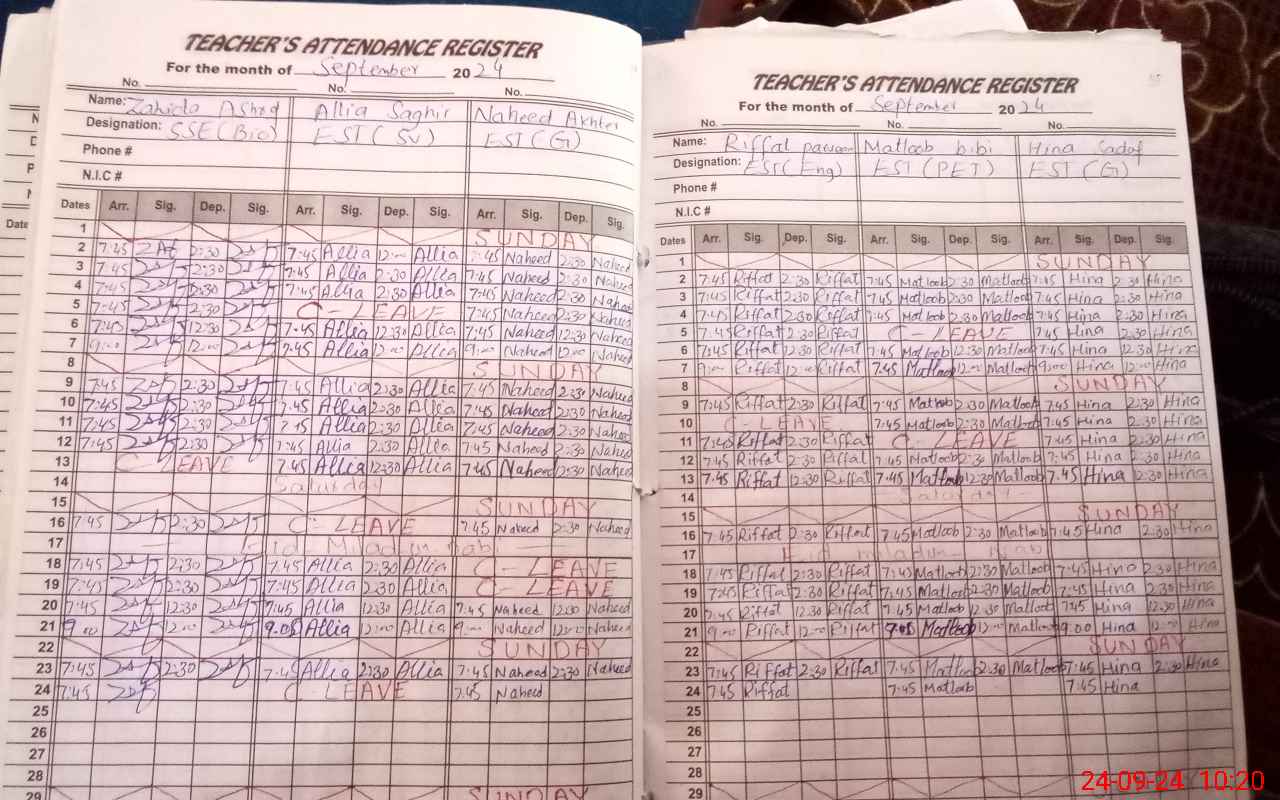 TEACHER'S ATTENDANCE REGISTER
For the month of September 2024
No. No. No.
Name: Zahida Ashraf Allia Saghir Naheed Akhter
Designation: SSE(Bio) EST(SV) EST(G)
Phone #
N.I.C #
Dates Arr. Sig. Dep. Sig. Arr. Sig. Dep. Sig. Arr. Sig. Dep. Sig.
1 SUNDAY
2 7:45 2:30 7:45 Allia Allia 7:45 Naheed 2:30 Naheed
3 7:45 2:30 7:45 Allia 2:30 Allia 7:45 Naheed 2:30 Naheed
4 7:45 2:30 7:45 Allia 2:30 Allia 7:45 Naheed 2:30 Naheed
5 7:45 2:30 C-LEAVE 7:45 Naheed 2:30 Naheed
6 7:45 12:30 7:45 Allia 12:30 Allia 7:45 Naheed 12:30 Naheed
7 9:00 12:00 7:45 Allia 12:00 Allia 9:00 Naheed 12:00 Naheed
8 SUNDAY
9 7:45 2:30 7:45 Allia 2:30 Allia 7:45 Naheed 2:30 Naheed
10 7:45 2:30 7:45 Allia 2:30 Allia 7:45 Naheed 2:30 Naheed
11 7:45 2:30 7:45 Allia 2:30 Allia 7:45 Naheed 2:30 Naheed
12 7:45 2:30 7:45 Allia 2:30 Allia 7:45 Naheed 2:30 Naheed
13 C-LEAVE 7:45 Allia 12:30 Allia 7:45 Naheed 12:30 Naheed
14 Saturday
15 SUNDAY
16 7:45 2:30 C-LEAVE 7:45 Naheed 2:30 Naheed
17 Eid Milad un nabi
18 7:45 2:30 7:45 Allia 2:30 Allia C-LEAVE
19 7:45 2:30 7:45 Allia 2:30 Allia C-LEAVE
20 7:45 12:30 7:45 Allia 12:30 Allia 7:45 Naheed 12:30 Naheed
21 9:00 12:00 9:05 Allia 12:00 Allia 9:00 Naheed 12:00 Naheed
22 SUNDAY
23 7:45 2:30 7:45 Allia 2:30 Allia 7:45 Naheed 2:30 Naheed
24 7:45 C-LEAVE 7:45 Naheed
25
26
27
28
29 SUNDAY
TEACHER'S ATTENDANCE REGISTER
For the month of September 2024
No. No. No.
Name: Riffat parveen Matloob bibi Hina Sadaf
Designation: EST(Eng) EST(PET) EST(G)
Phone #
N.I.C #
Dates Arr. Sig. Dep. Sig. Arr. Sig. Dep. Sig. Arr. Sig. Dep. Sig.
1 SUNDAY
2 7:45 Riffat 2:30 Riffat 7:45 Matloob 2:30 Matloob 7:45 Hina 2:30 Hina
3 7:45 Riffat 2:30 Riffat 7:45 Matloob 2:30 Matloob 7:45 Hina 2:30 Hina
4 7:45 Riffat 2:30 Riffat 7:45 Matloob 2:30 Matloob 7:45 Hina 2:30 Hina
5 7:45 Riffat 2:30 Riffat C-LEAVE 7:45 Hina 2:30 Hina
6 7:45 Riffat 12:30 Riffat 7:45 Matloob 12:30 Matloob 7:45 Hina 12:30 Hina
7 9:00 Riffat 12:00 Riffat 7:45 Matloob 12:00 Matloob 9:00 Hina 12:00 Hina
8 SUNDAY
9 7:45 Riffat 2:30 Riffat 7:45 Matloob 2:30 Matloob 7:45 Hina 2:30 Hina
10 C-LEAVE 7:45 Matloob 2:30 Matloob 7:45 Hina 2:30 Hina
11 7:45 Riffat 2:30 Riffat C-LEAVE 7:45 Hina 2:30 Hina
12 7:45 Riffat 2:30 Riffat 7:45 Matloob 2:30 Matloob 7:45 Hina 2:30 Hina
13 7:45 Riffat 12:30 Riffat 7:45 Matloob 12:30 Matloob 7:45 Hina 2:30 Hina
14 Saturday
15 SUNDAY
16 7:45 Riffat 2:30 Riffat 7:45 Matloob 2:30 Matloob 7:45 Hina 2:30 Hina
17 Eid miladun nabi
18 7:45 Riffat 2:30 Riffat 7:45 Matloob 2:30 Matloob 7:45 Hina 2:30 Hina
19 7:45 Riffat 2:30 Riffat 7:45 Matloob 2:30 Matloob 7:45 Hina 2:30 Hina
20 7:45 Riffat 12:30 Riffat 7:45 Matloob 12:30 Matloob 7:45 Hina 12:30 Hina
21 9:00 Riffat 12:00 Riffat Matloob 12:00 Matloob 9:00 Hina 12:00 Hina
22 SUNDAY
23 7:45 Riffat 2:30 Riffat 7:45 Matloob 2:30 Matloob 7:45 Hina 2:30 Hina
24 7:45 Riffat 7:45 Matloob 7:45 Hina
25
26
27
28
29
24-09-24 10:20